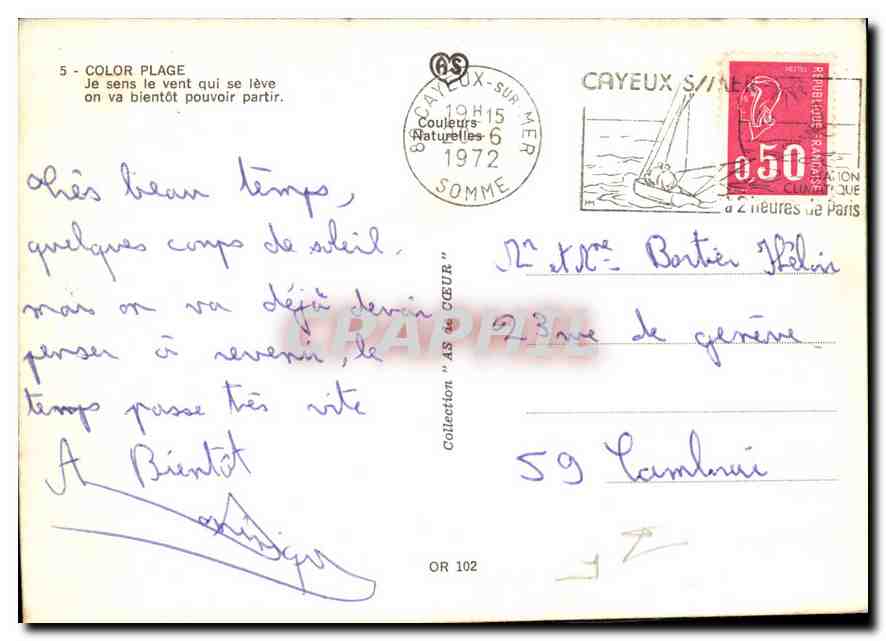 5 - COLOR PLAGE
Je sens le vent qui se lève
on va bientôt pouvoir partir.
AS
Couleurs
Naturelles
80 CAYEUX-SUR-MER
19H15
6
1972
SOMME
CAYEUX S/MER
CLIMATIQUE
à 2 heures de Paris
POSTES
REPUBLIQUE FRANÇAISE
0,50
très beau temps,
quelques coups de soleil.
mais on va déjà devoir
penser à revenir, le
temps passe très vite
A Bientôt
Collection "AS de CŒUR"
Mr et Mme Bartier Hélin
23 rue de genève
59 Cambrai
OR 102
CPAPHIL